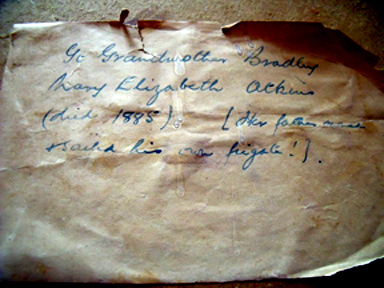 Gt Grandmother Bradley
Mary Elizabeth Atkins
(died 1885). [Her father made
& sailed his own frigate!].